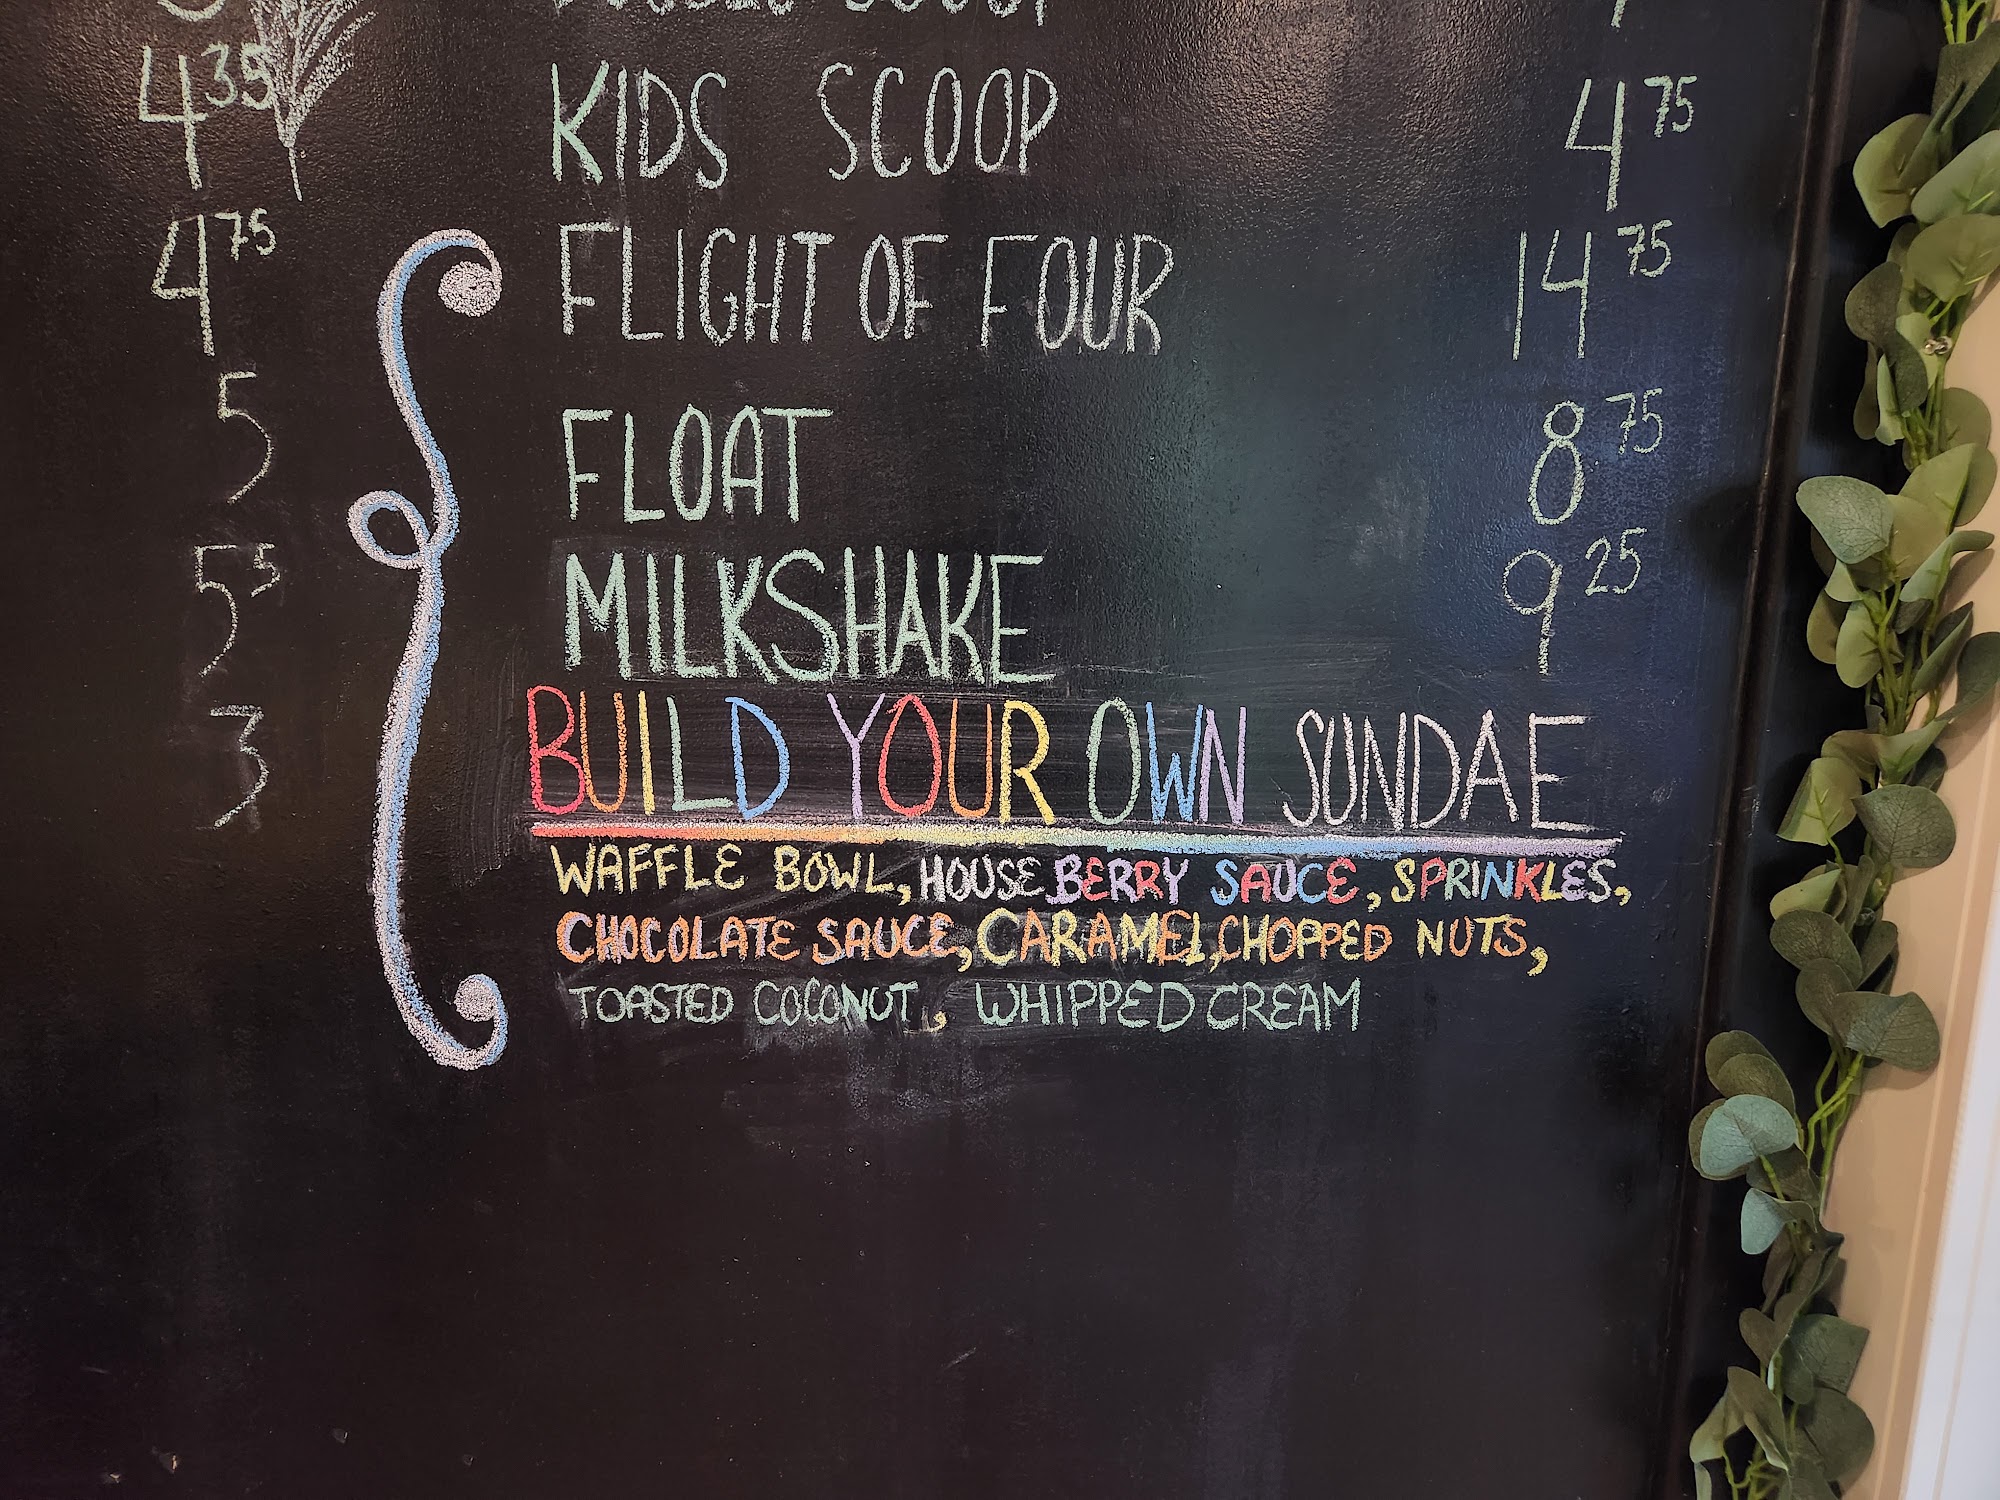 4 35
4 75
5
5 5
3
KIDS SCOOP 4 75
FLIGHT OF FOUR 14 75
FLOAT 8 75
MILKSHAKE 9 25
BUILD YOUR OWN SUNDAE
WAFFLE BOWL, HOUSE BERRY SAUCE, SPRINKLES,
CHOCOLATE SAUCE, CARAMEL, CHOPPED NUTS,
TOASTED COCONUT, WHIPPED CREAM